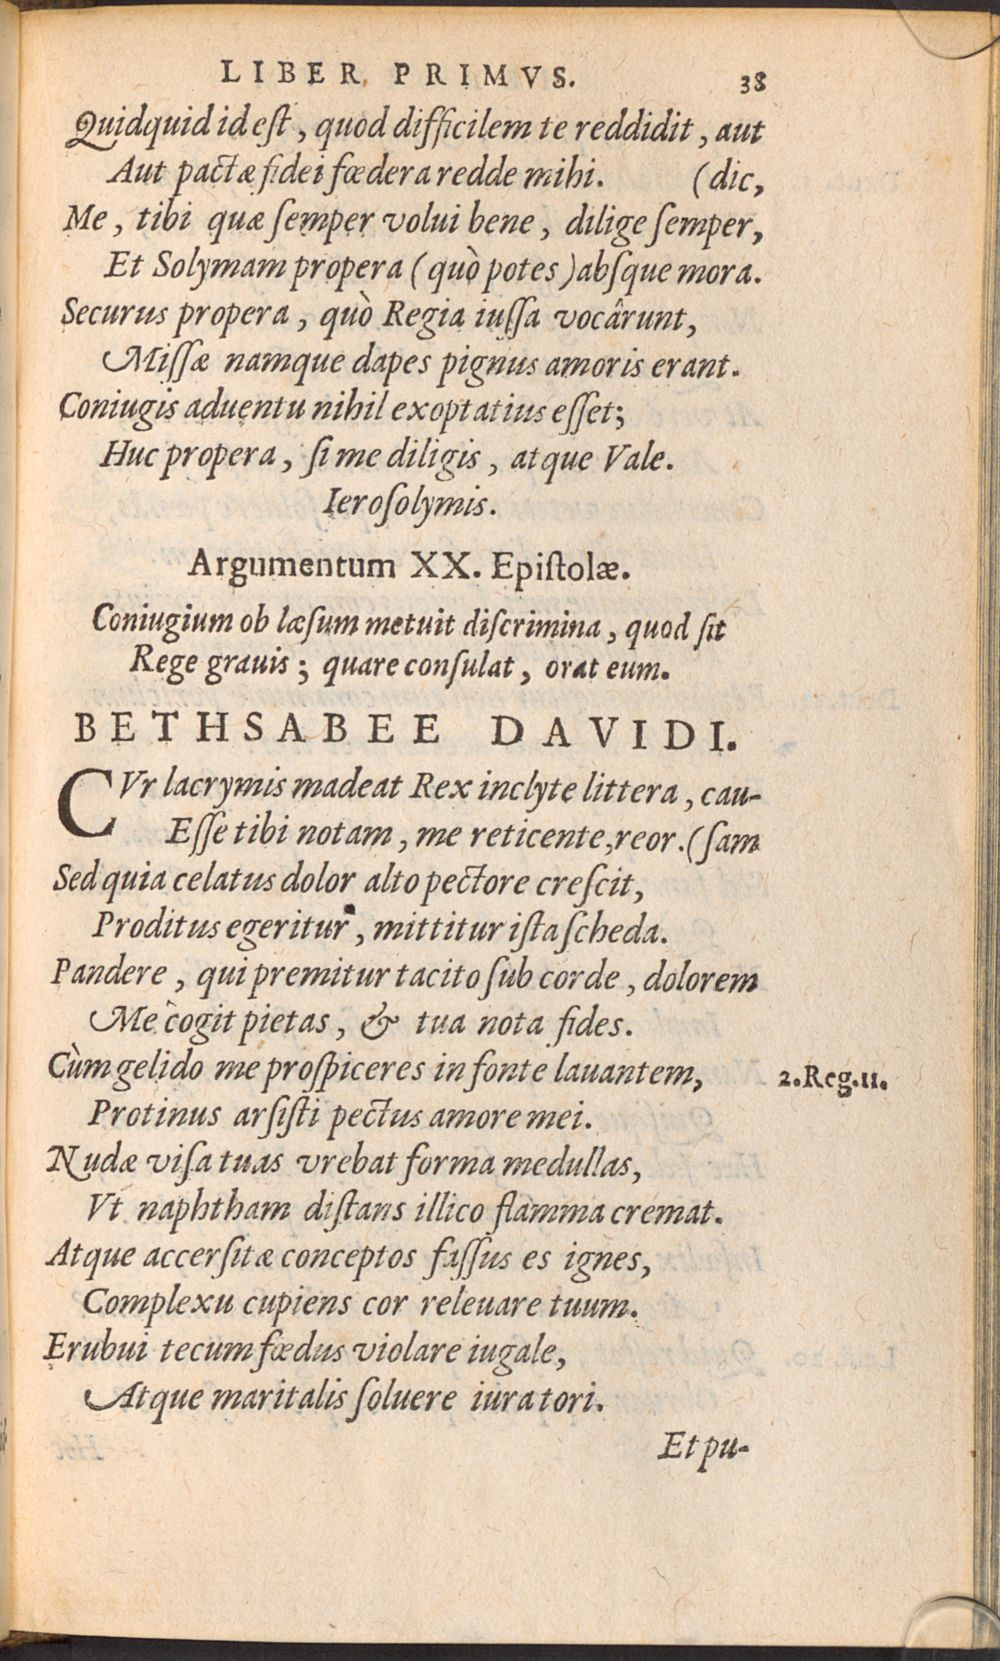 LIBER PRIMVS. 38
Quidquid id eſt, quod difficilem te reddidit, aut
Aut pactæ fidei fœdera redde mihi. (dic,
Me, tibi quæ ſemper volui bene, dilige ſemper,
Et Solymam propera (quò potes) abſque mora.
Securus propera, quò Regia iuſſa vocârunt,
Miſſæ namque dapes pignus amoris erant.
Coniugis aduentu nihil exoptatius eſſet;
Huc propera, ſi me diligis, atque Vale.
Ieroſolymis.
Argumentum XX. Epiſtolæ.
Coniugium ob læſum metuit diſcrimina, quod ſit
Rege grauis; quare conſulat, orat eum.
BETHSABEE DAVIDI.
CVr lacrymis madeat Rex inclyte littera, cau-
Eſſe tibi notam, me reticente, reor. (ſam
Sed quia celatus dolor alto pectore creſcit,
Proditus egeritur, mittitur iſta ſcheda.
Pandere, qui premitur tacito ſub corde, dolorem
Me cogit pietas, & tua nota fides.
Cùm gelido me proſpiceres in fonte lauantem, 2. Reg. 11.
Protinus arſiſti pectus amore mei.
Nudæ viſa tuas vrebat forma medullas,
Vt naphtham diſtans illico flamma cremat.
Atque accerſitæ conceptos faſſus es ignes,
Complexu cupiens cor releuare tuum.
Erubui tecum fœdus violare iugale,
Atque maritalis ſoluere iura tori.
Et pu-